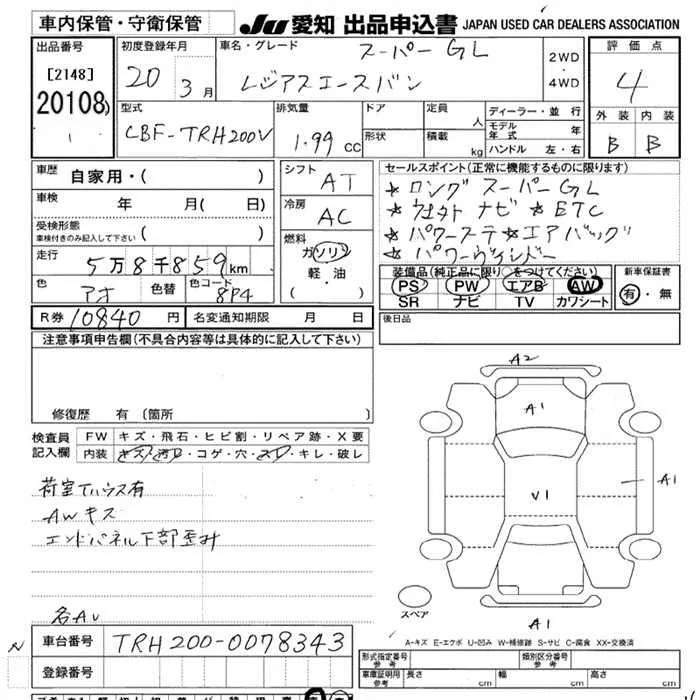 車内保管・守衛保管 JU 愛知 出品申込書 JAPAN USED CAR DEALERS ASSOCIATION
出品番号 初度登録年月 車名・グレード スーパーGL 2WD・4WD 評価点
[2148] 20 年 3月 レジアスエースバン 4
20108
型式 排気量 ドア 定員 人 ディーラー・並行 外装 内装
CBF-TRH200V 1.99 CC 形状 積載 kg モデル年式 年 B B
ハンドル 左・右
車歴 自家用・( ) シフト AT セールスポイント(正常に機能するものに限ります)
車検 年 月( 日) 冷房 AC ☆ロング スーパーGL
受検形態 車検付きのみ記入して下さい ( ) ナビ ☆ETC
走行 5万8千859km 燃料 ガソリン ☆パワーステ ☆エアバッグ
軽・油 ☆パワーウィンドー
色 アオ 色替 色コード 8P4 ( ・ )
装備品(純正品に限り○をつけてください) 新車保証書
PS PW エアB AW 有・無
SR ナビ TV カワシート
R券 10840 円 名変通知期限 月 日 後日品
注意事項申告欄(不具合内容等は具体的に記入して下さい)
修復歴 有 〔箇所 〕
検査員記入欄 FW キズ・飛石・ヒビ割・リペア跡・X要
内装 キズ・汚レ・コゲ・穴・スレ・キレ・破レ
荷室Tハウス有
AWキズ
エンドパネル下部歪み
名AU
A2
A1
V1
A1
A1
スペア
A-キズ E-エクボ U-凹み W-補修跡 S-サビ C-腐食 XX-交換済
N 車台番号 TRH200-0078343
登録番号
形式指定番号 参考 類別区分番号 参考
車庫証明用 参考 長さ cm 幅 cm 高さ cm